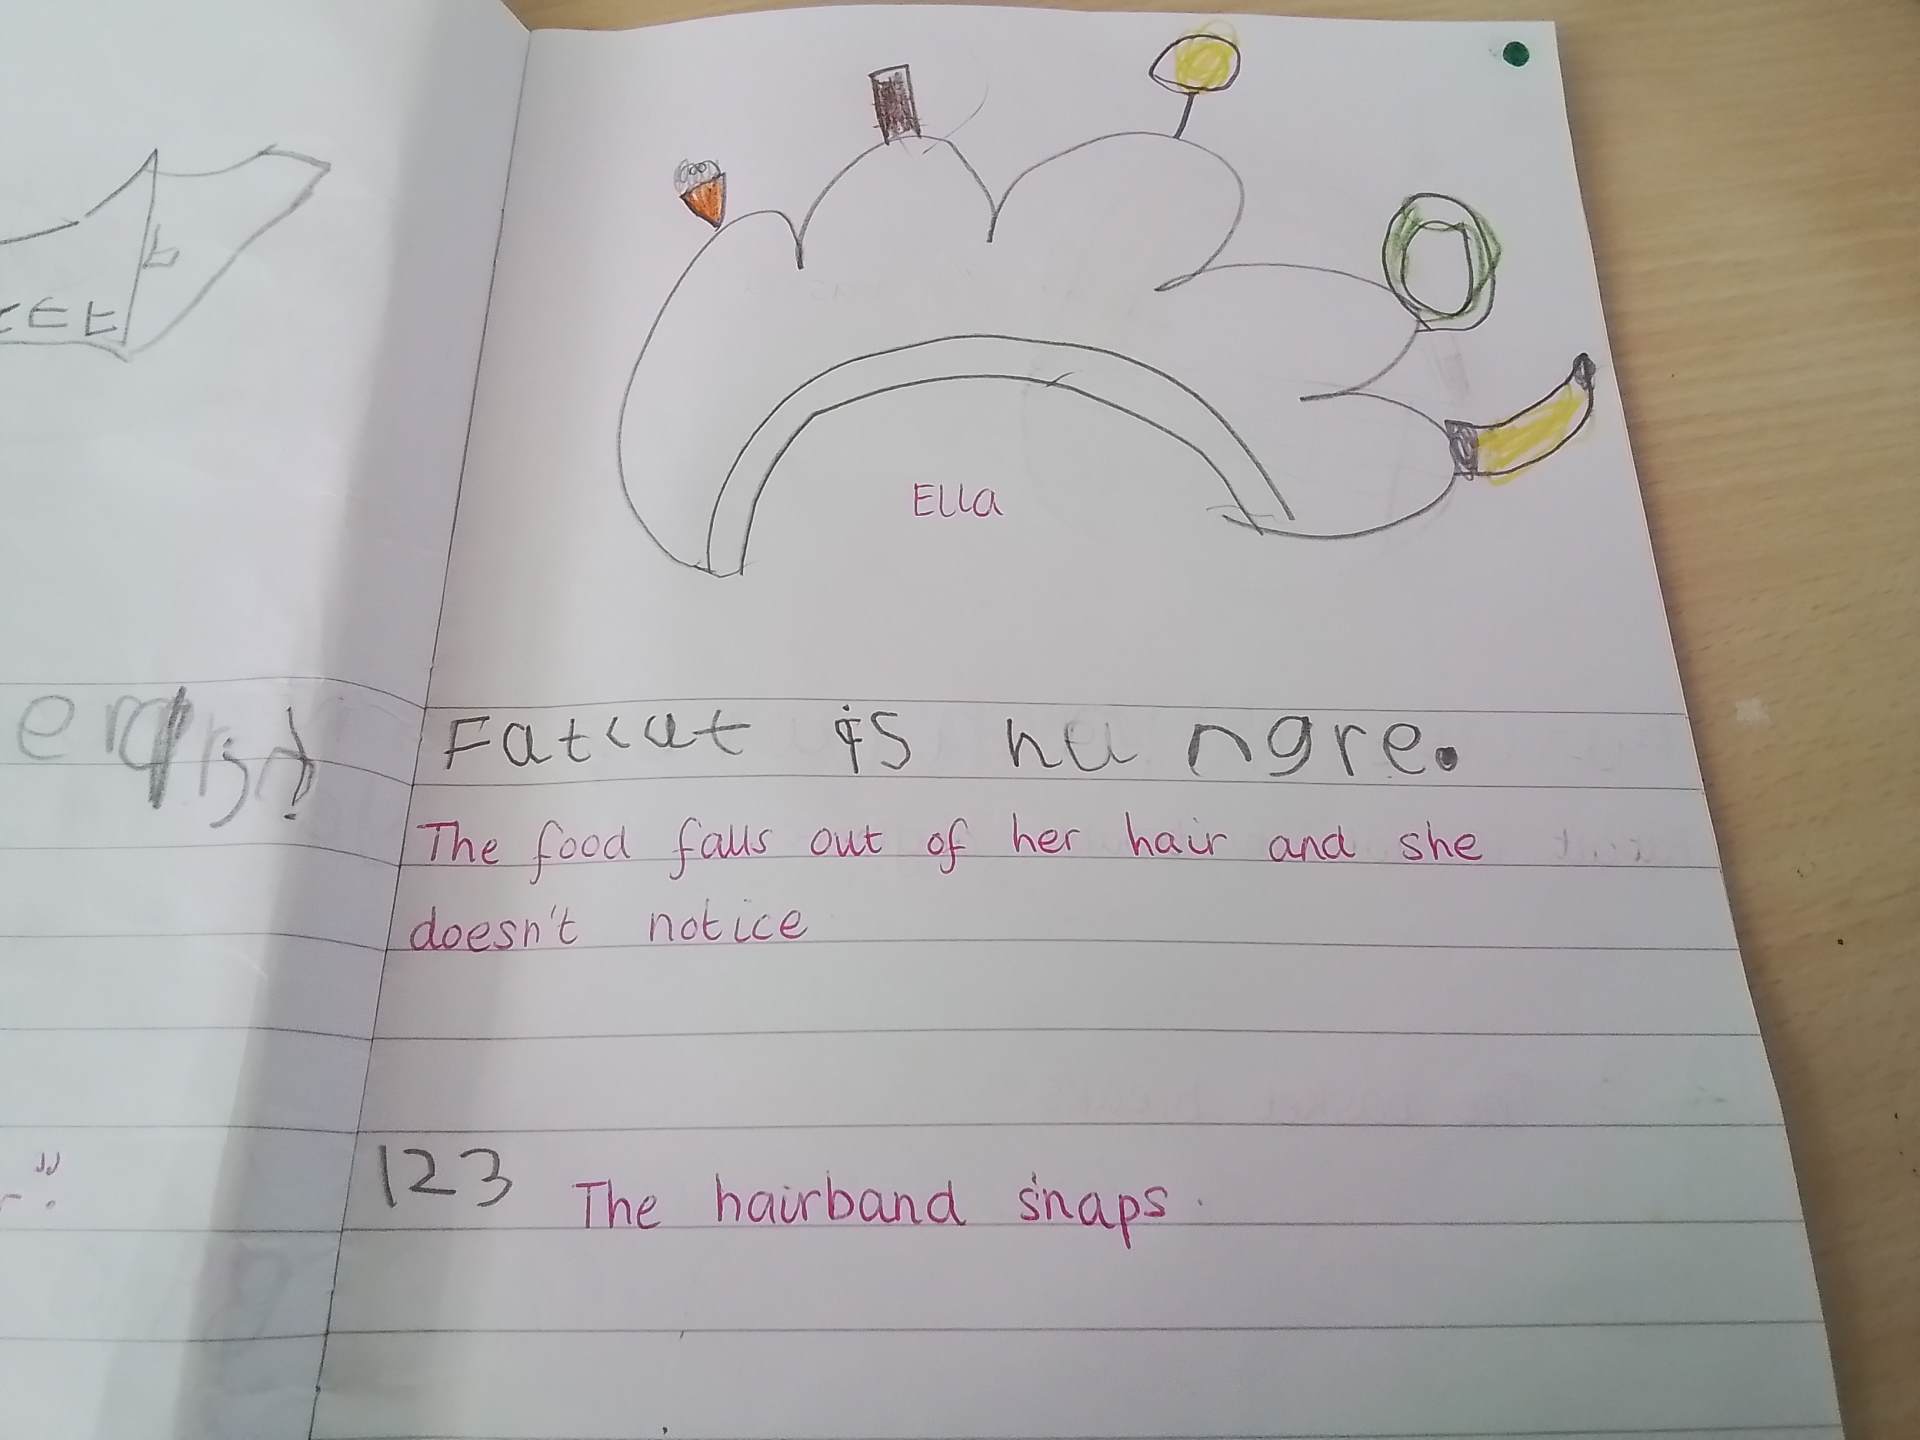 Ella
Fatcat is hungre.
The food falls out of her hair and she
doesn't notice
123 The hairband snaps.